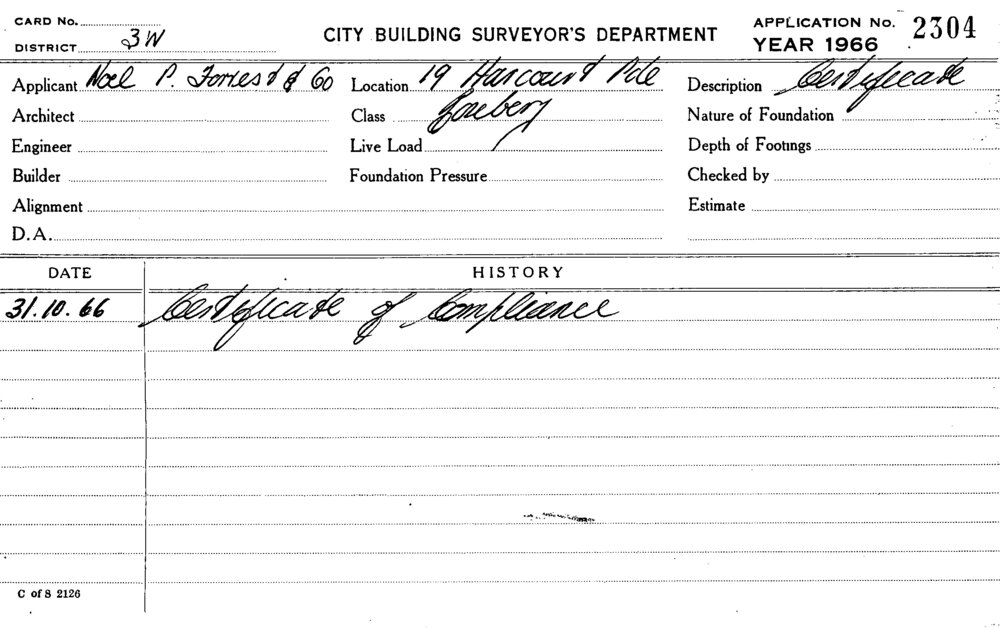 CARD No.
DISTRICT 3W
CITY BUILDING SURVEYOR'S DEPARTMENT
APPLICATION No. 2304
YEAR 1966
Applicant Noel P. Forrest & Co Location 19 Harcourt Pde Description Certificate
Architect Class Rosebery Nature of Foundation
Engineer Live Load Depth of Footings
Builder Foundation Pressure Checked by
Alignment Estimate
D.A.
DATE HISTORY
31.10.66 Certificate of Compliance
C of S 2126